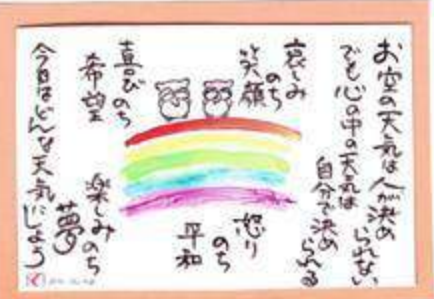 お空の天気は人が決め
られない
でも心の中の天気は
自分で決め
られる
哀しみ
のち
笑顔
怒り
のち
平和
喜びのち
希望
楽しみのち
夢
今日はどんな天気にしよう